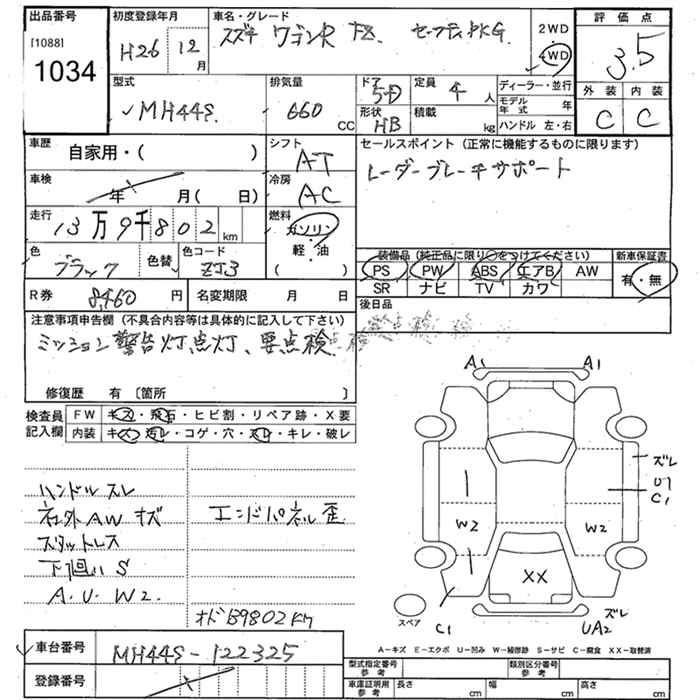 出品番号 初度登録年月 車名・グレード 評価点
[1088]
1034
H26 12月
スズキ ワゴンR FX セーフティPKG
2WD
4WD
3.5
型式 排気量 ドア 定員 ディーラー・並行 外装 内装
MH44S 660 CC 5D 4人
モデル年式 年
形状 積載
HB kg
ハンドル 左・右
C C
車歴 シフト セールスポイント(正常に機能するものに限ります)
自家用・( ) AT
レーダーブレーキサポート
車検 冷房
年 月( 日) AC
走行 燃料
13万9千802km
ガソリン・軽・油 ( )
色 色替 色コード
ブラック ZJ3
装備品(純正品に限り○をつけてください) 新車保証書
PS PW ABS エアB AW 有・無
SR ナビ TV カワ
R券 8,460円 名変期限 月 日
後日品
注意事項申告欄(不具合内容等は具体的に記入して下さい)
ミッション警告灯点灯、要点検
修復歴 有 〔箇所 〕
検査員記入欄 FW キズ・飛石・ヒビ割・リペア跡・X要
内装 キズ・汚レ・コゲ・穴・スレ・キレ・破レ
ハンドルスレ
社外AWキズ エンドパネル歪
スタットレス
下廻りS
A.U.W2.
オド139802km
A1 A1
ズレ
U1
C1
W2 W2
XX
C1
ズレ
UA2
スペア
A-キズ E-エクボ U-凹み W-補修跡 S-サビ C-腐食 XX-取替済
車台番号 MH44S-122325
登録番号
型式指定番号 参考 類別区分番号 参考
車庫証明用 参考 長さ cm 幅 cm 高さ cm